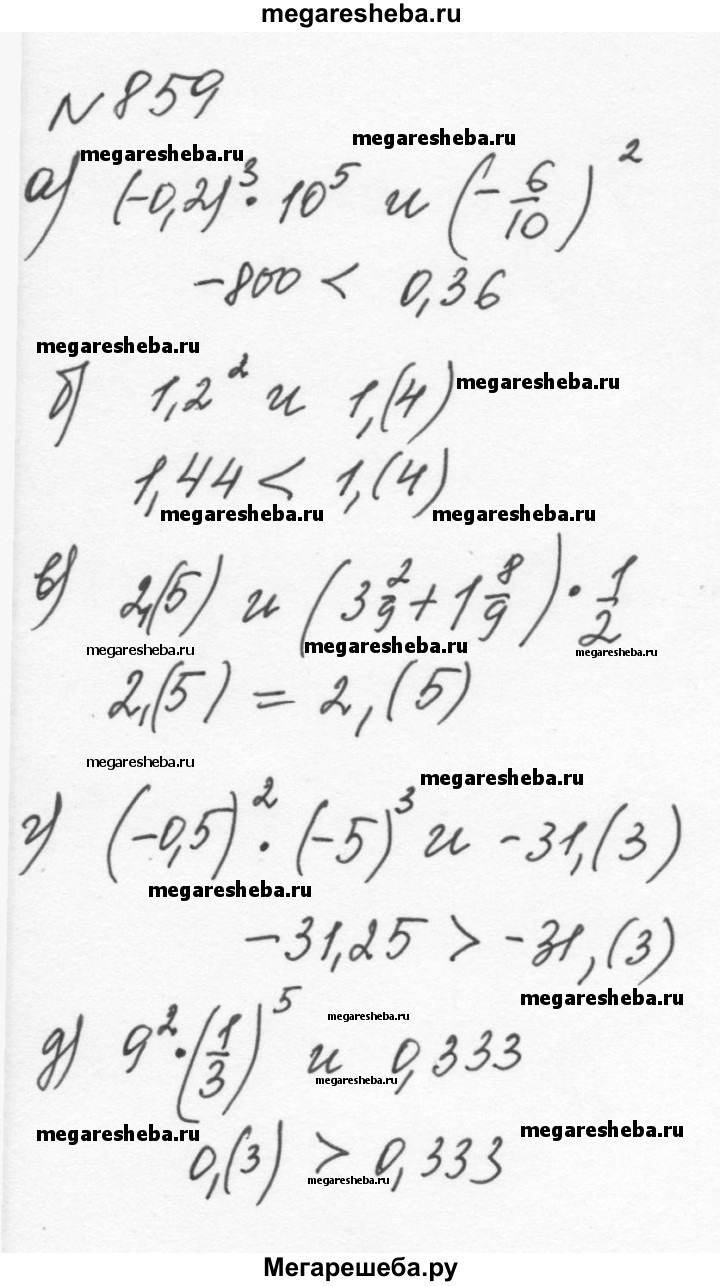 megaresheba.ru
№ 859
megaresheba.ru megaresheba.ru
а) (-0,2)³ · 10⁵ и (-6/10)²
-800 < 0,36
megaresheba.ru
б) 1,2² и 1,(4) megaresheba.ru
1,44 < 1,(4)
megaresheba.ru megaresheba.ru
в) 2,(5) и (3 2/9 + 1 8/9) · 1/2
megaresheba.ru megaresheba.ru megaresheba.ru
2,(5) = 2,(5)
megaresheba.ru megaresheba.ru
г) (-0,5)² · (-5)³ и -31,(3)
megaresheba.ru
-31,25 > -31,(3)
megaresheba.ru
megaresheba.ru
д) 9² · (1/3)⁵ и 0,333
megaresheba.ru
megaresheba.ru megaresheba.ru
0,(3) > 0,333
megaresheba.ru
Мегарешеба.ру